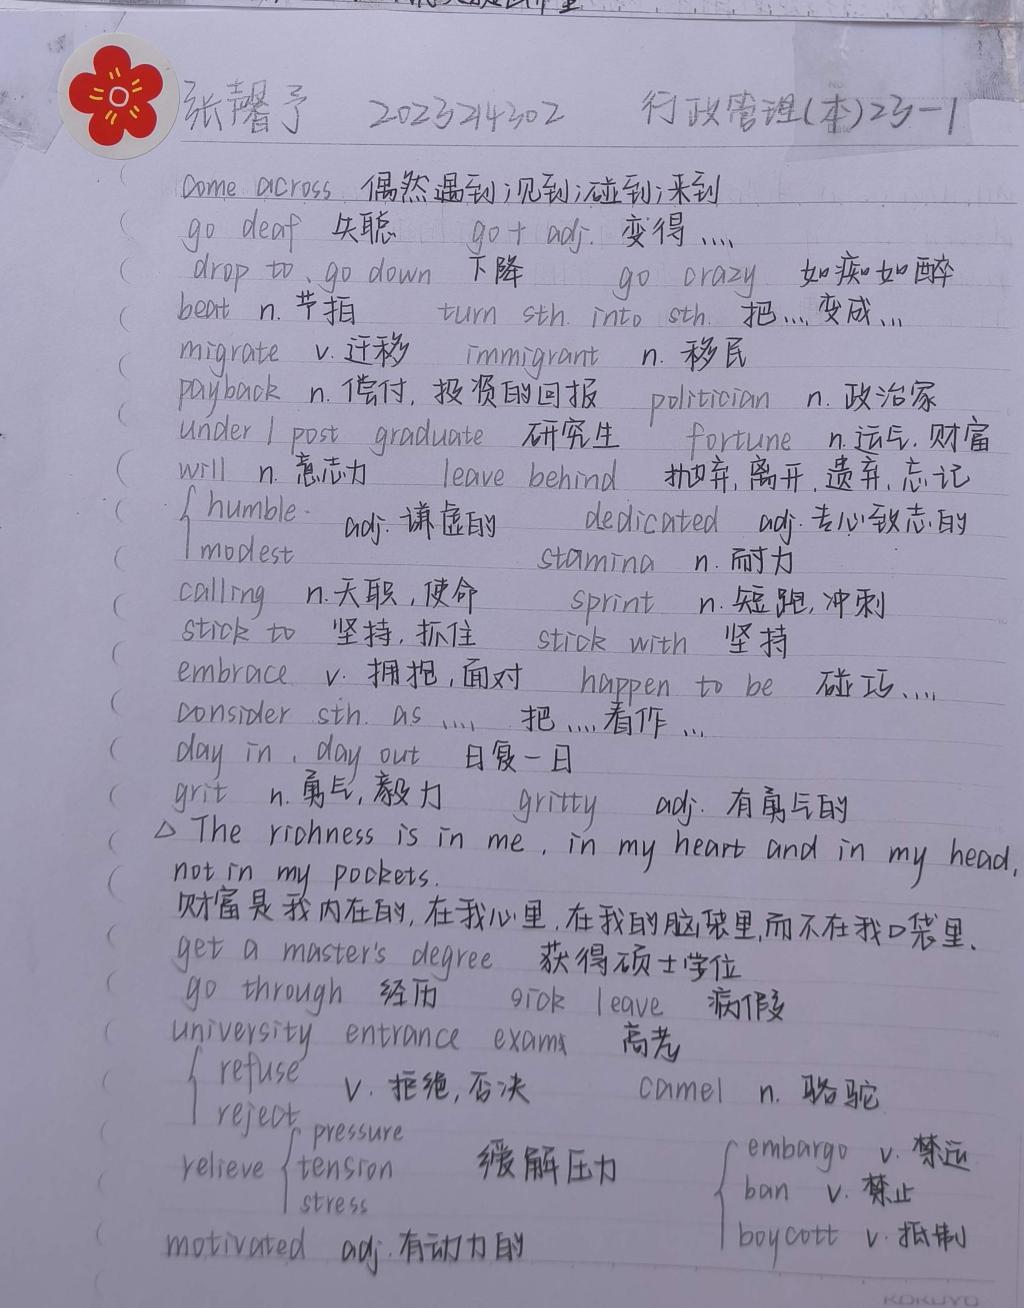 张馨予 2023214302 行政管理(本)23-1
come across 偶然遇到;见到;碰到;来到
go deaf 失聪 go + adj. 变得....
drop to、go down 下降 go crazy 如痴如醉
beat n. 节拍 turn sth. into sth. 把....变成...
migrate v. 迁移 immigrant n. 移民
payback n. 偿付, 投资的回报 politician n. 政治家
under / post graduate 研究生 fortune n. 运气. 财富
will n. 意志力 leave behind 抛弃, 离开, 遗弃, 忘记
humble adj. 谦虚的 dedicated adj. 专心致志的
modest stamina n. 耐力
calling n. 天职, 使命 sprint n. 短跑, 冲刺
stick to 坚持, 抓住 stick with 坚持
embrace v. 拥抱, 面对 happen to be 碰巧....
consider sth. as .... 把....看作...
day in, day out 日复一日
grit n. 勇气, 毅力 gritty adj. 有勇气的
△ The richness is in me, in my heart and in my head,
not in my pockets.
财富是我内在的, 在我心里, 在我的脑袋里, 而不在我口袋里.
get a master's degree 获得硕士学位
go through 经历 sick leave 病假
university entrance exams 高考
refuse
reject v. 拒绝, 否决 camel n. 骆驼
relieve pressure tension stress 缓解压力
embargo v. 禁运
ban v. 禁止
boycott v. 抵制
motivated adj. 有动力的
KOKUYO